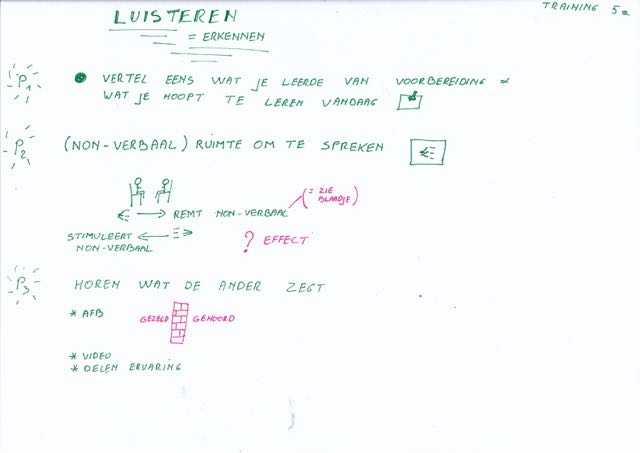 TRAINING 5a
LUISTEREN
= ERKENNEN
P1
VERTEL EENS WAT JE LEERDE VAN VOORBEREIDING &
WAT JE HOOPT TE LEREN VANDAAG
P2
(NON-VERBAAL) RUIMTE OM TE SPREKEN
(= ZIE
BLAADJE)
REMT NON-VERBAAL
STIMULEERT
NON-VERBAAL
? EFFECT
P3
HOREN WAT DE ANDER ZEGT
* AFB GEZEGD GEHOORD
* VIDEO
* DELEN ERVARING